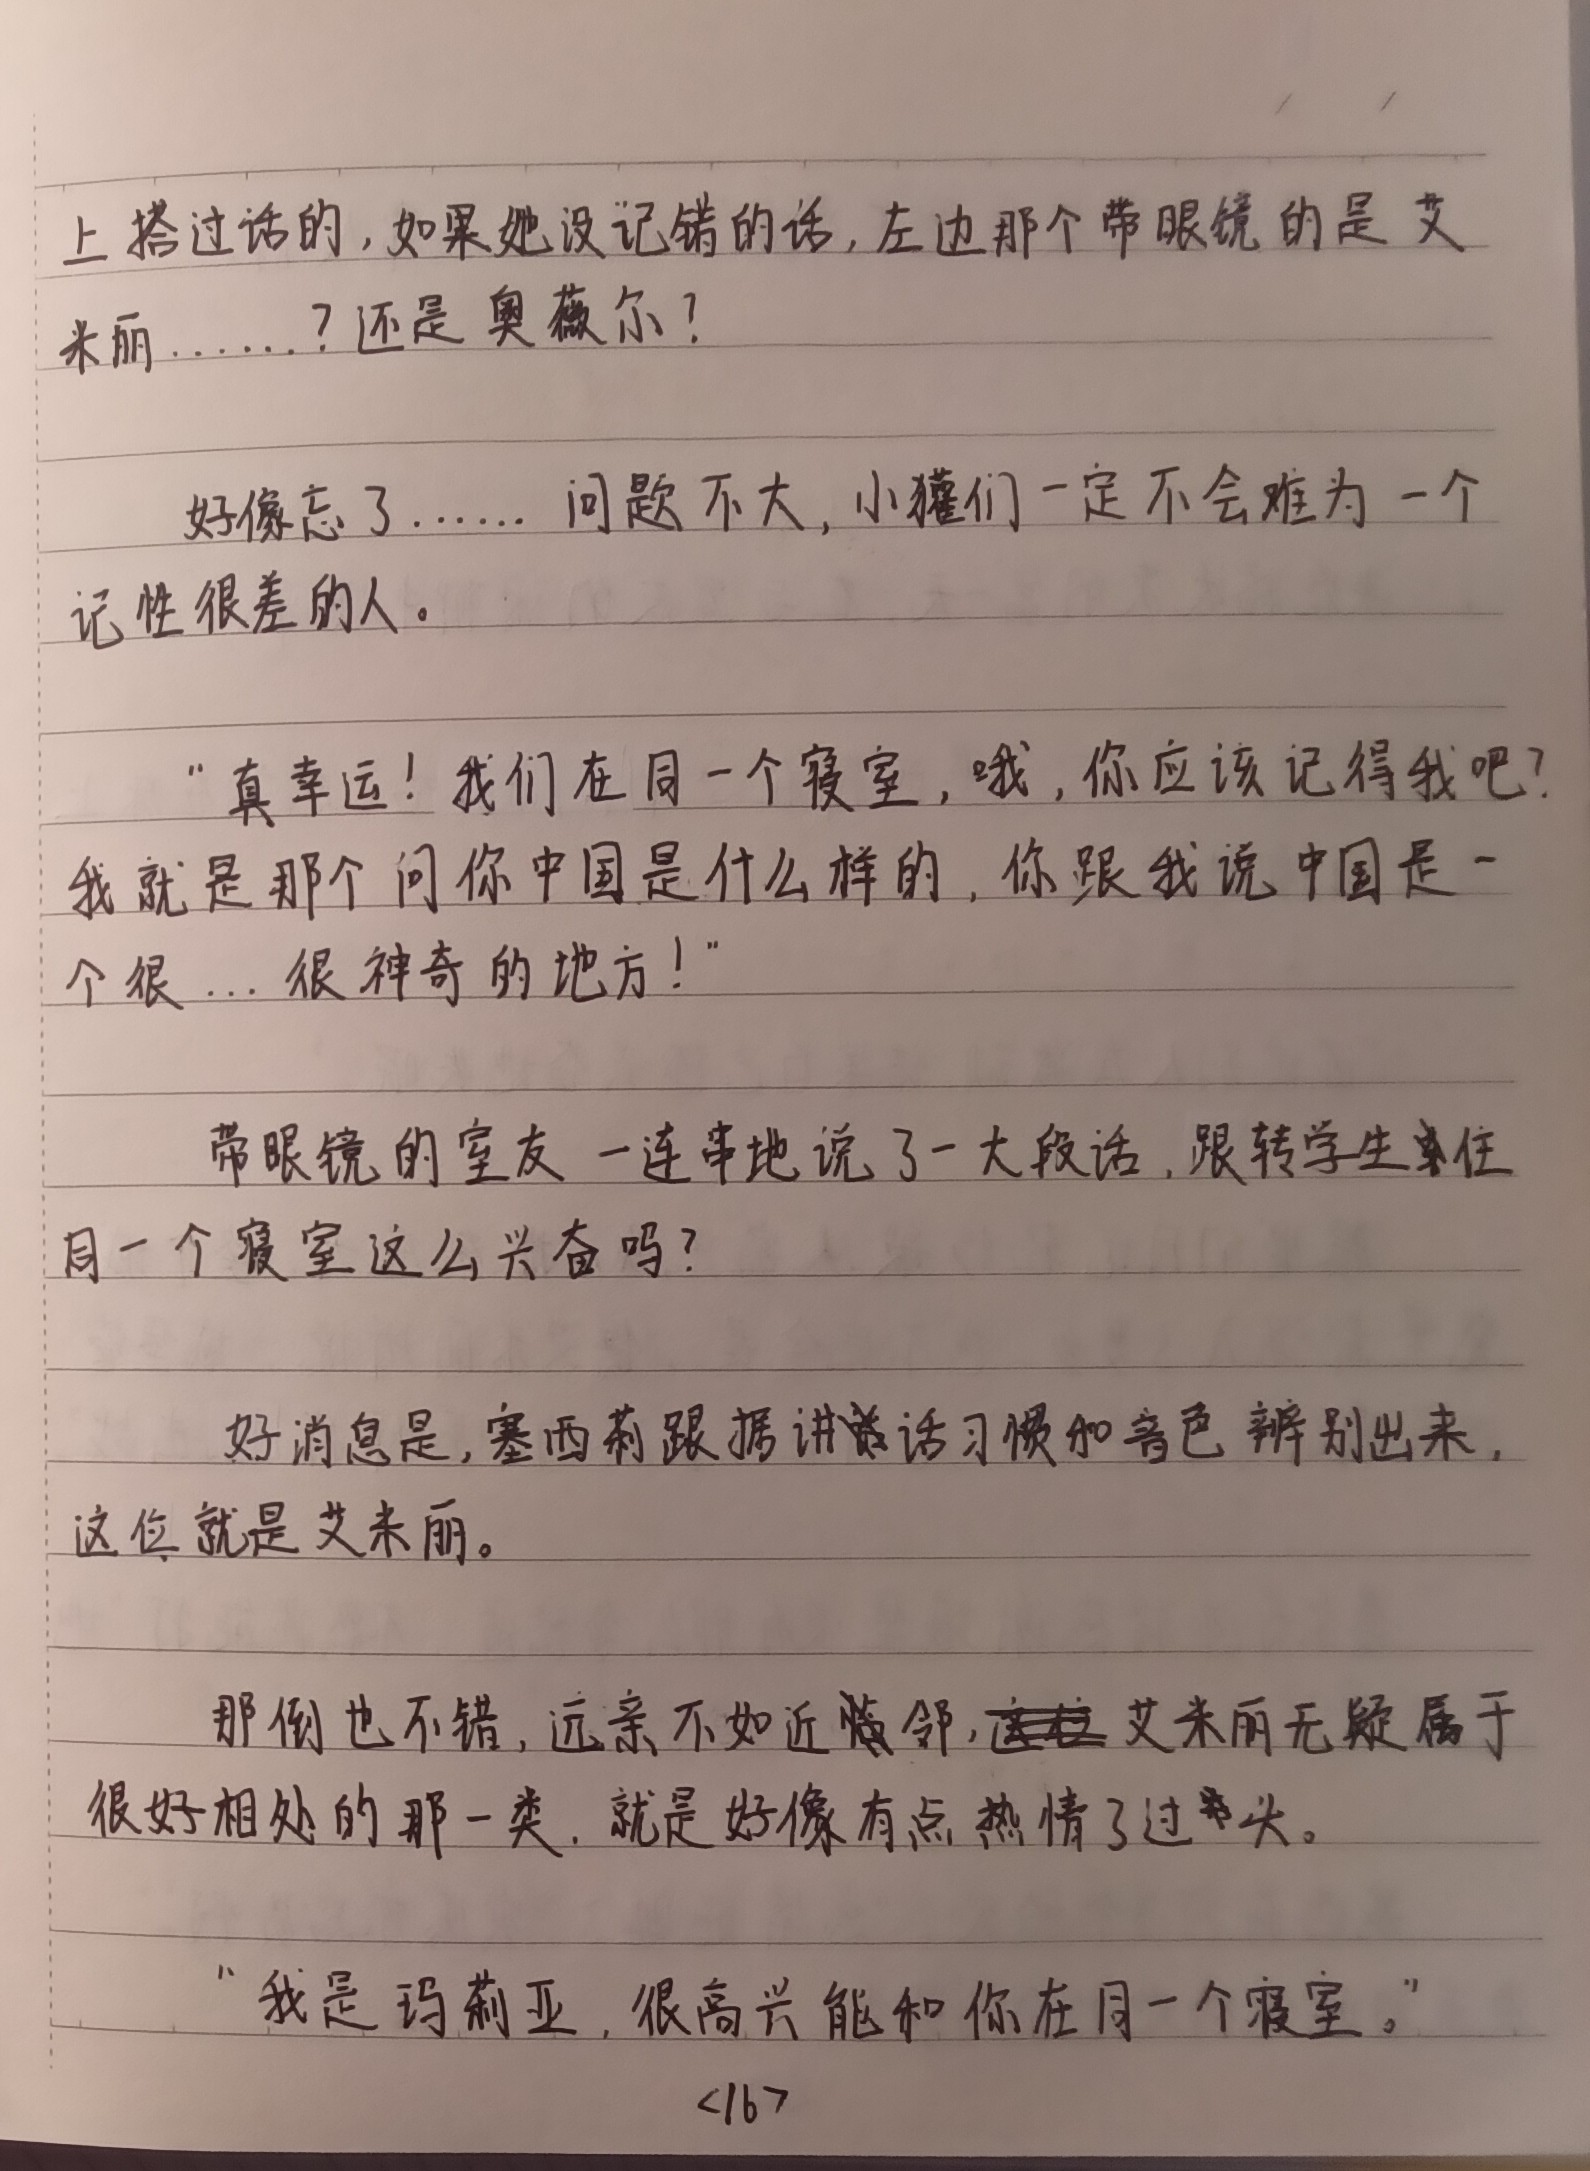 上搭过话的,如果她没记错的话,左边那个带眼镜的是艾
米丽……?还是奥薇尔?
好像忘了……问题不大,小獾们一定不会难为一个
记性很差的人。
“真幸运!我们在同一个寝室,哦,你应该记得我吧?
我就是那个问你中国是什么样的,你跟我说中国是一
个很…很神奇的地方!”
带眼镜的室友一连串地说了一大段话,跟转学生住
同一个寝室这么兴奋吗?
好消息是,塞西莉跟据讲话习惯和音色辨别出来,
这位就是艾米丽。
那倒也不错,远亲不如近邻,艾米丽无疑属于
很好相处的那一类,就是好像有点热情了过头。
“我是玛莉亚,很高兴能和你在同一个寝室。”
<16>